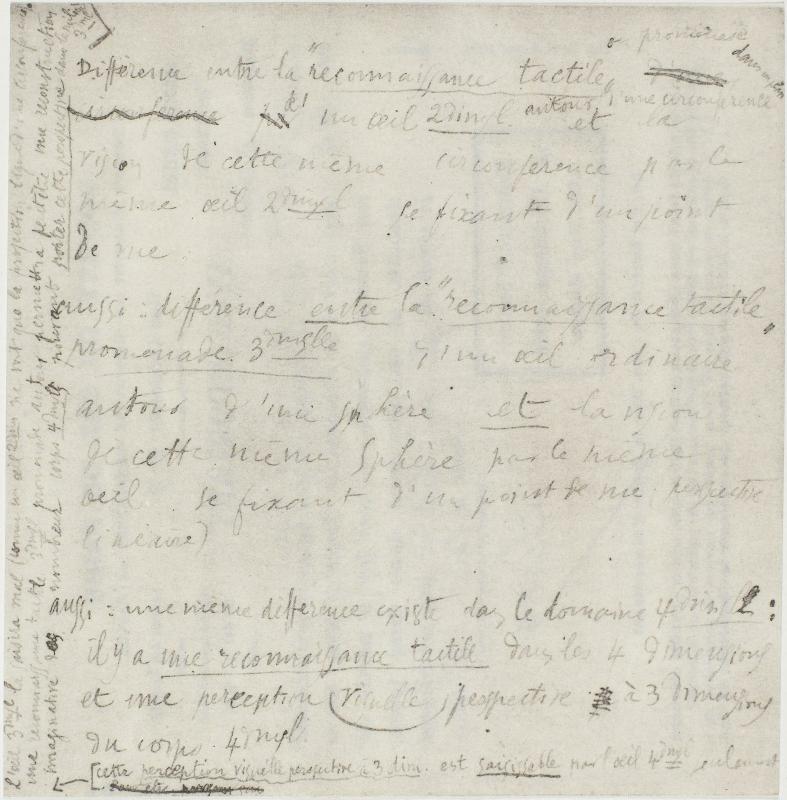 o promenade
Différence entre la "reconnaissance tactile, dans un plan
d'1 œil 2dmsl autour d'une circonférence" et la
vision de cette même circonférence par le
même œil 2dmsl se fixant d'un point
de vue
aussi : différence entre la "reconnaissance tactile
promenade 3dmslle" d'un œil ordinaire
autour d'une sphère et la vision
de cette même sphère par le même
œil se fixant d'un point de vue perspective
linéaire)
aussi : une même différence existe dans le domaine 4dmsl :
il y a une reconnaissance tactile dans les 4 dimensions
et une perception visuelle perspective à 3 dimensions
du corps 4dmsl.
[cette perception visuelle perspective à 3 dim. est saisissable par l'œil 4dmsl seulement
L'œil 3dmsl la verra mal (comme un œil 2dm ne voit que la projection
une reconnaissance tactile 3dmsl, promenade autour permettra peut être une reconstruction
imaginative des nombreux corps 4dmsls pouvant porter cette perspective dans le milieu
3dmsl